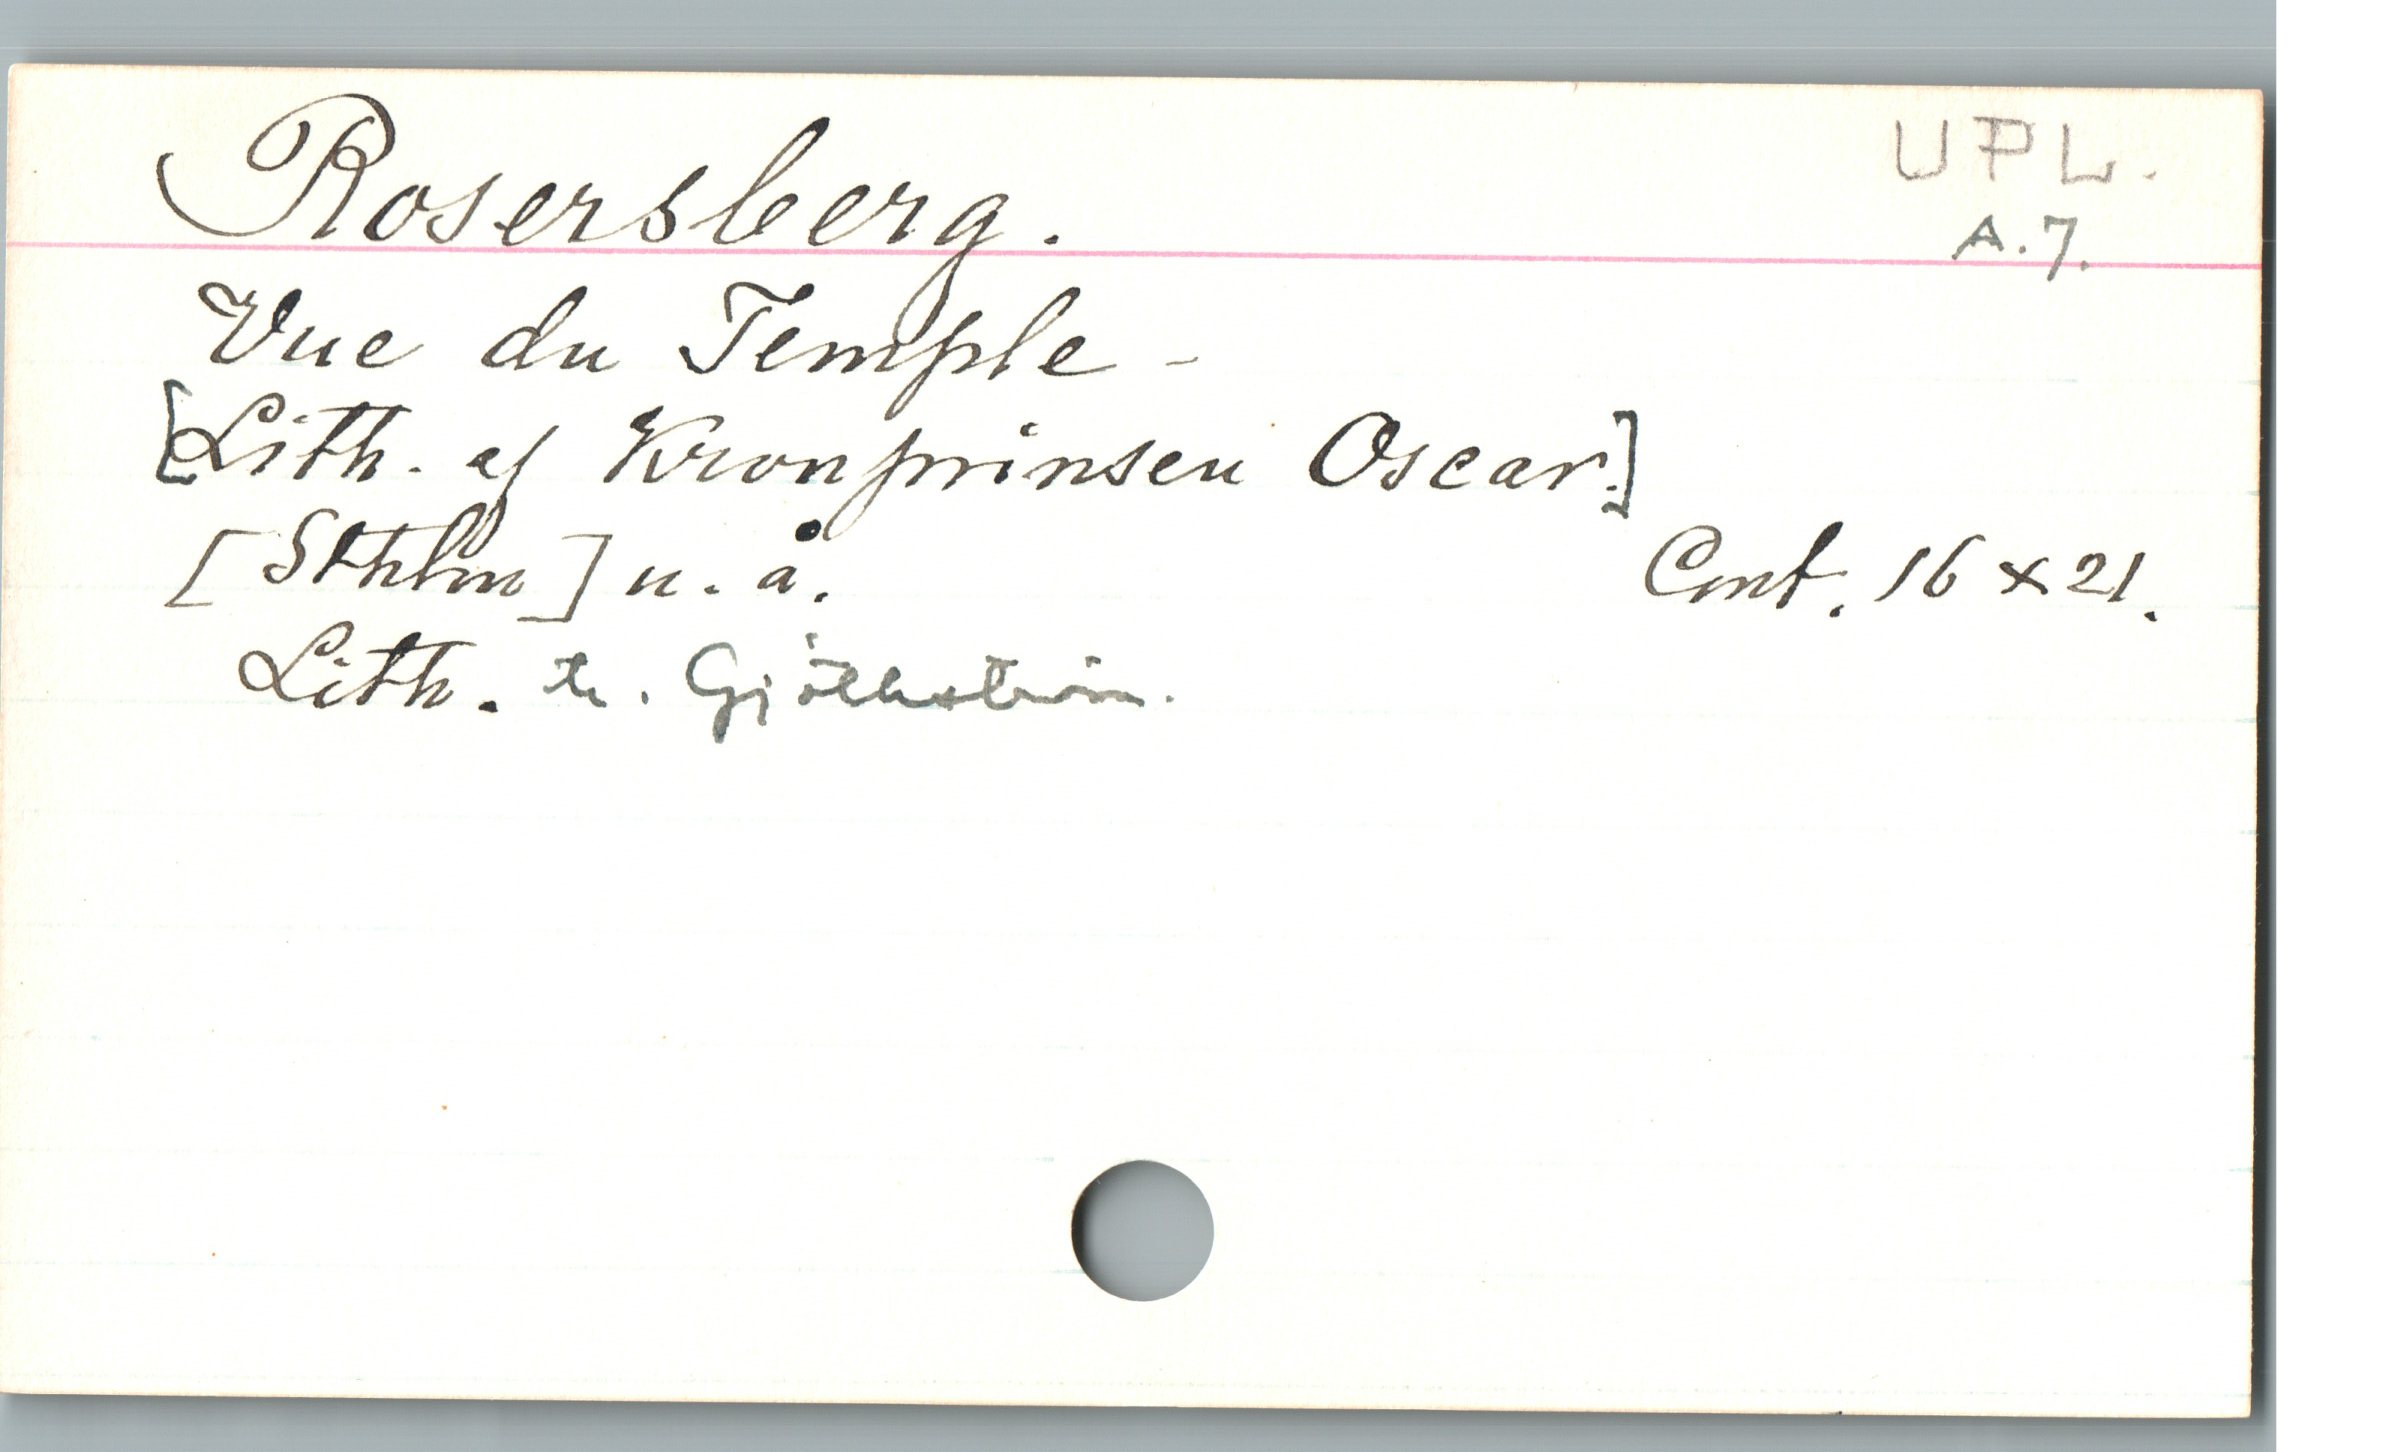 Rosersberg.
UPL.
A.7.
Vue du Temple -
[Lith. af Kronprinsen Oscar.]
[Sthlm] u. å.
Cmt. 16 x 21.
Lith. tr. Gjöthström.